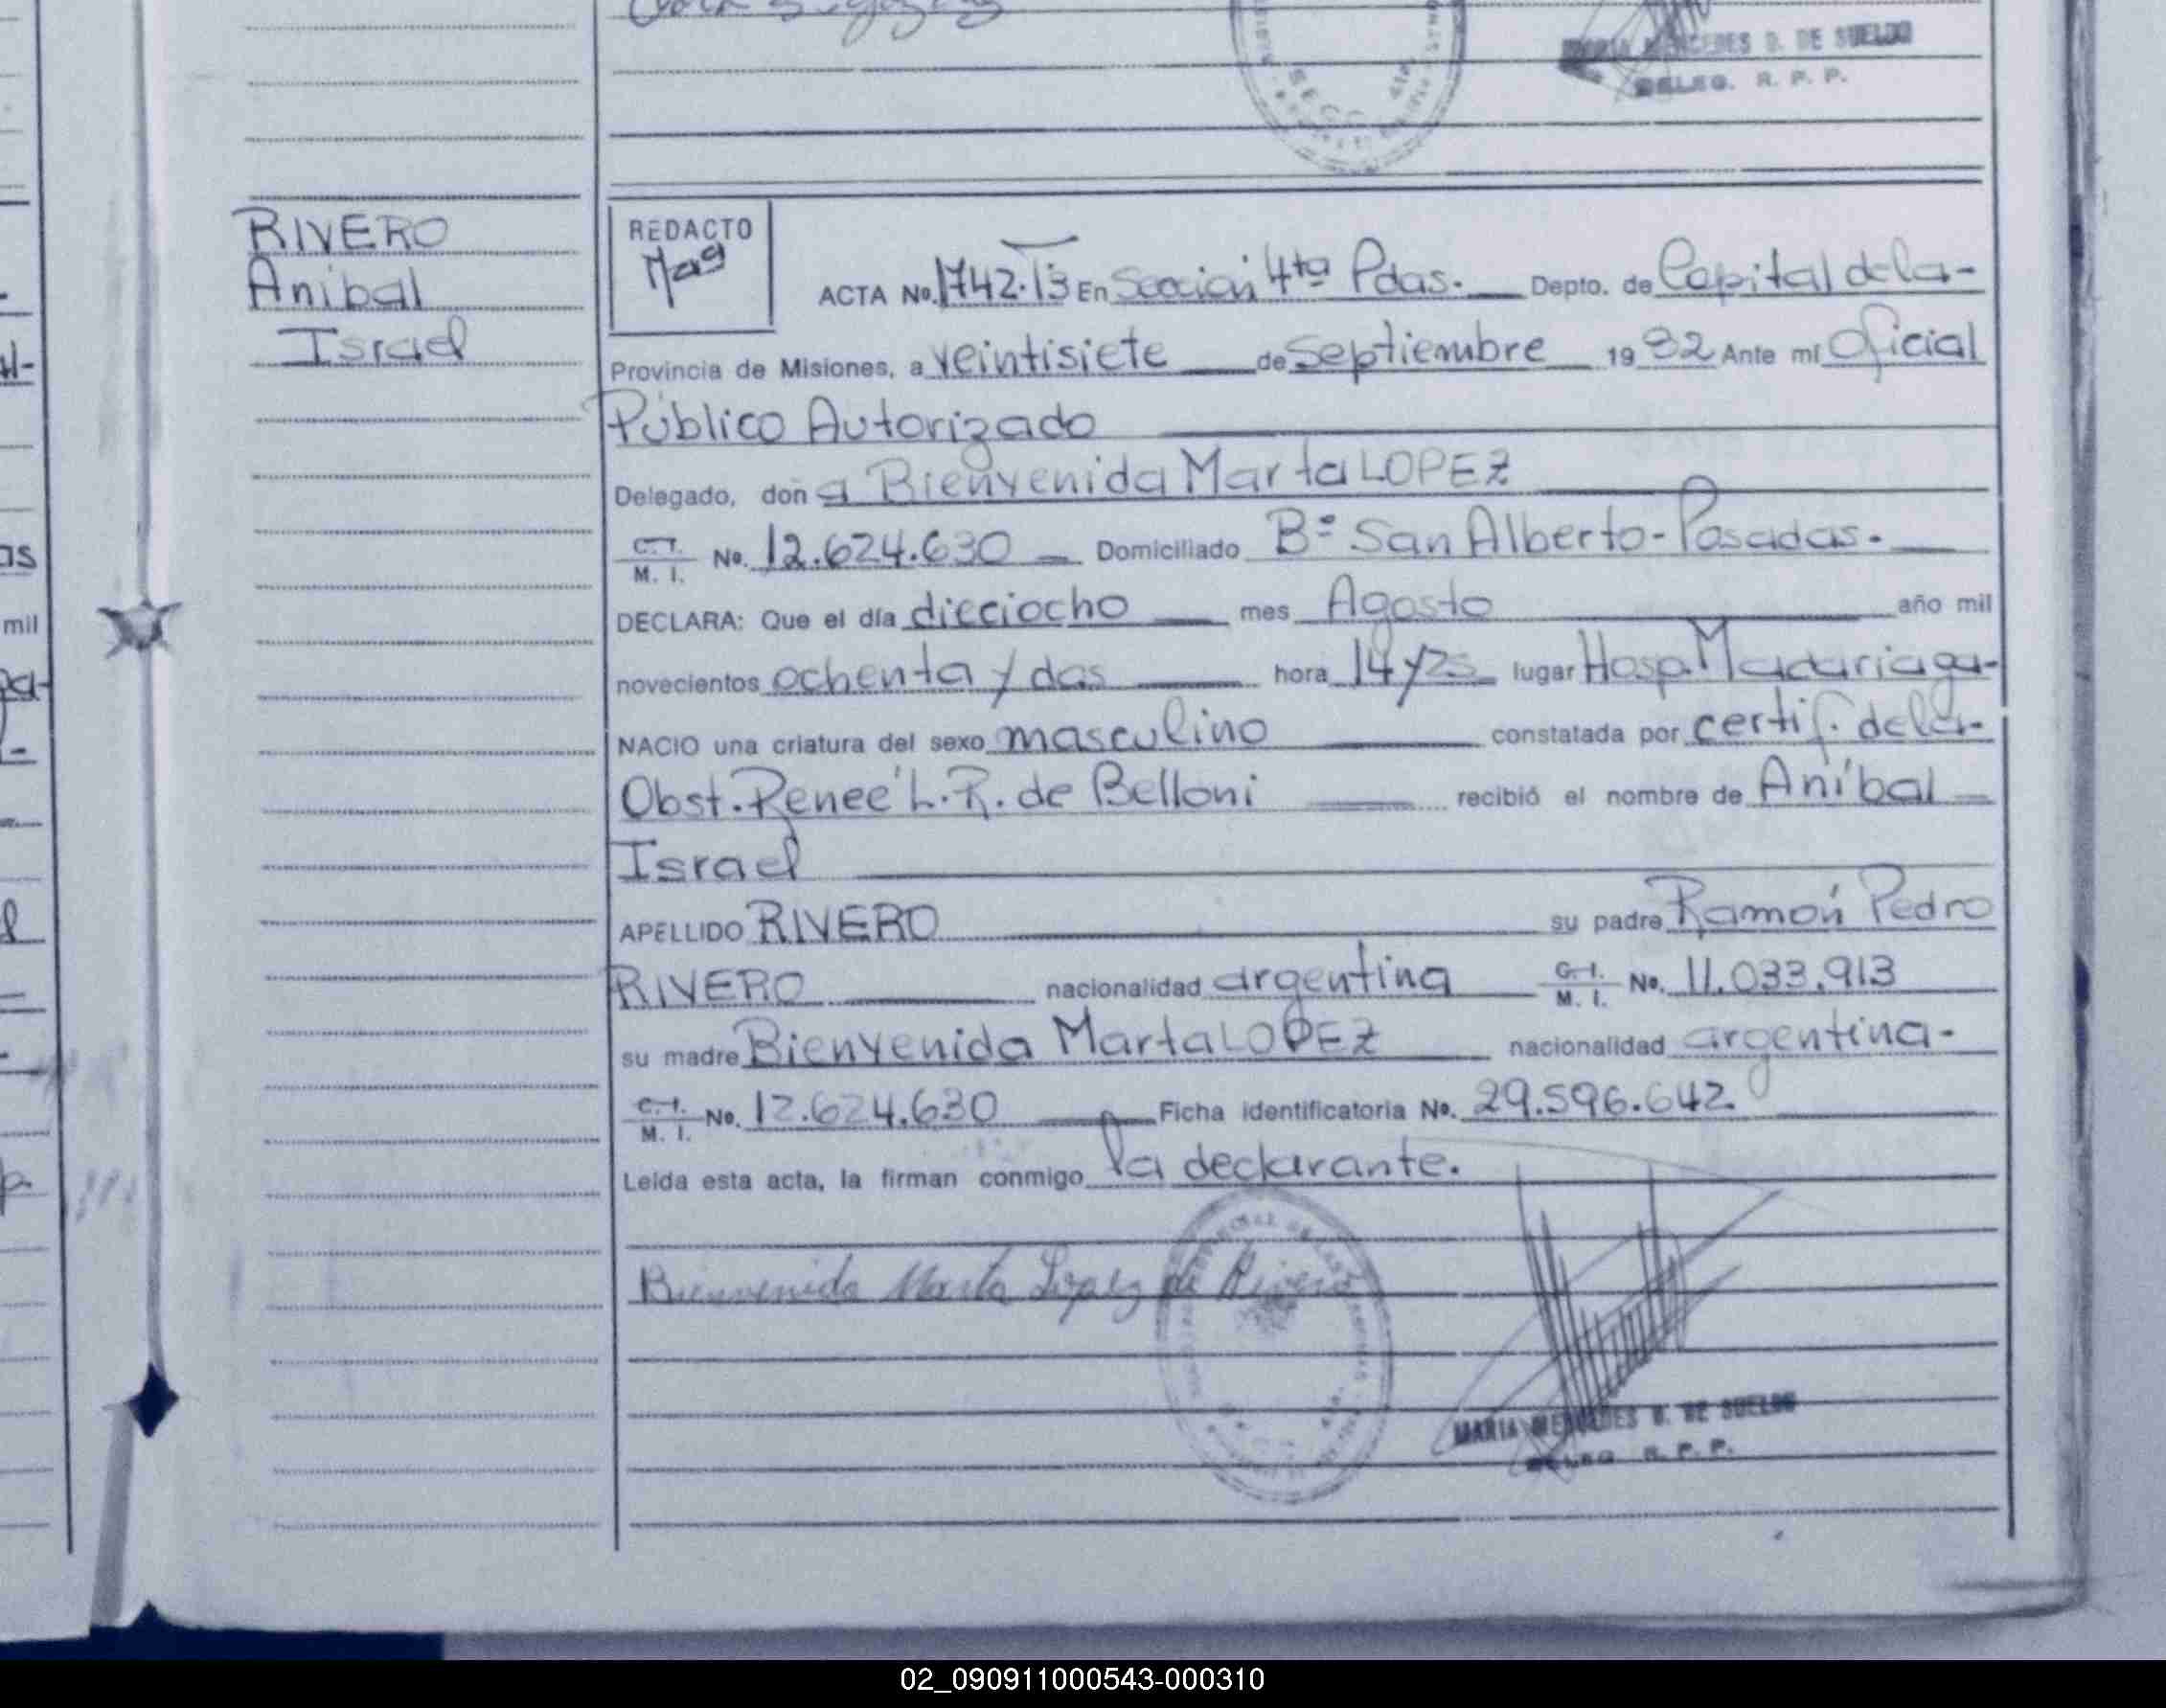 MARIA MERCEDES D. DE SUELDO
DELEG. R. P. P.
SECC. 4ta
RIVERO
Anibal
Israel
REDACTO
Mag
ACTA No. 1742.T3 En Sección 4ta Pdas. Depto. de Capital de la-
Provincia de Misiones, a veintisiete de Septiembre 19 82 Ante mí Oficial
Público Autorizado
Delegado, don a Bienvenida Marta LOPEZ
C. I. M. I. No. 12.624.630 Domiciliado Bº San Alberto-Posadas.
DECLARA: Que el día dieciocho mes Agosto año mil
novecientos ochenta y dos hora 14 y 25 lugar Hosp. Madariaga-
NACIO una criatura del sexo masculino constatada por certif. de la-
Obst. Reneé L. R. de Belloni recibió el nombre de Aníbal
Israel
APELLIDO RIVERO su padre Ramón Pedro
RIVERO nacionalidad argentina C. I. M. I. No. 11.033.913
su madre Bienvenida Marta LOPEZ nacionalidad argentina-
C. I. M. I. No. 12.624.630 Ficha identificatoria No. 29.596.642
Leída esta acta, la firman conmigo la declarante.
Bienvenida Marta Lopez de Rivero
MARIA MERCEDES D. DE SUELDO
DELEG. R. P. P.
02_090911000543-000310